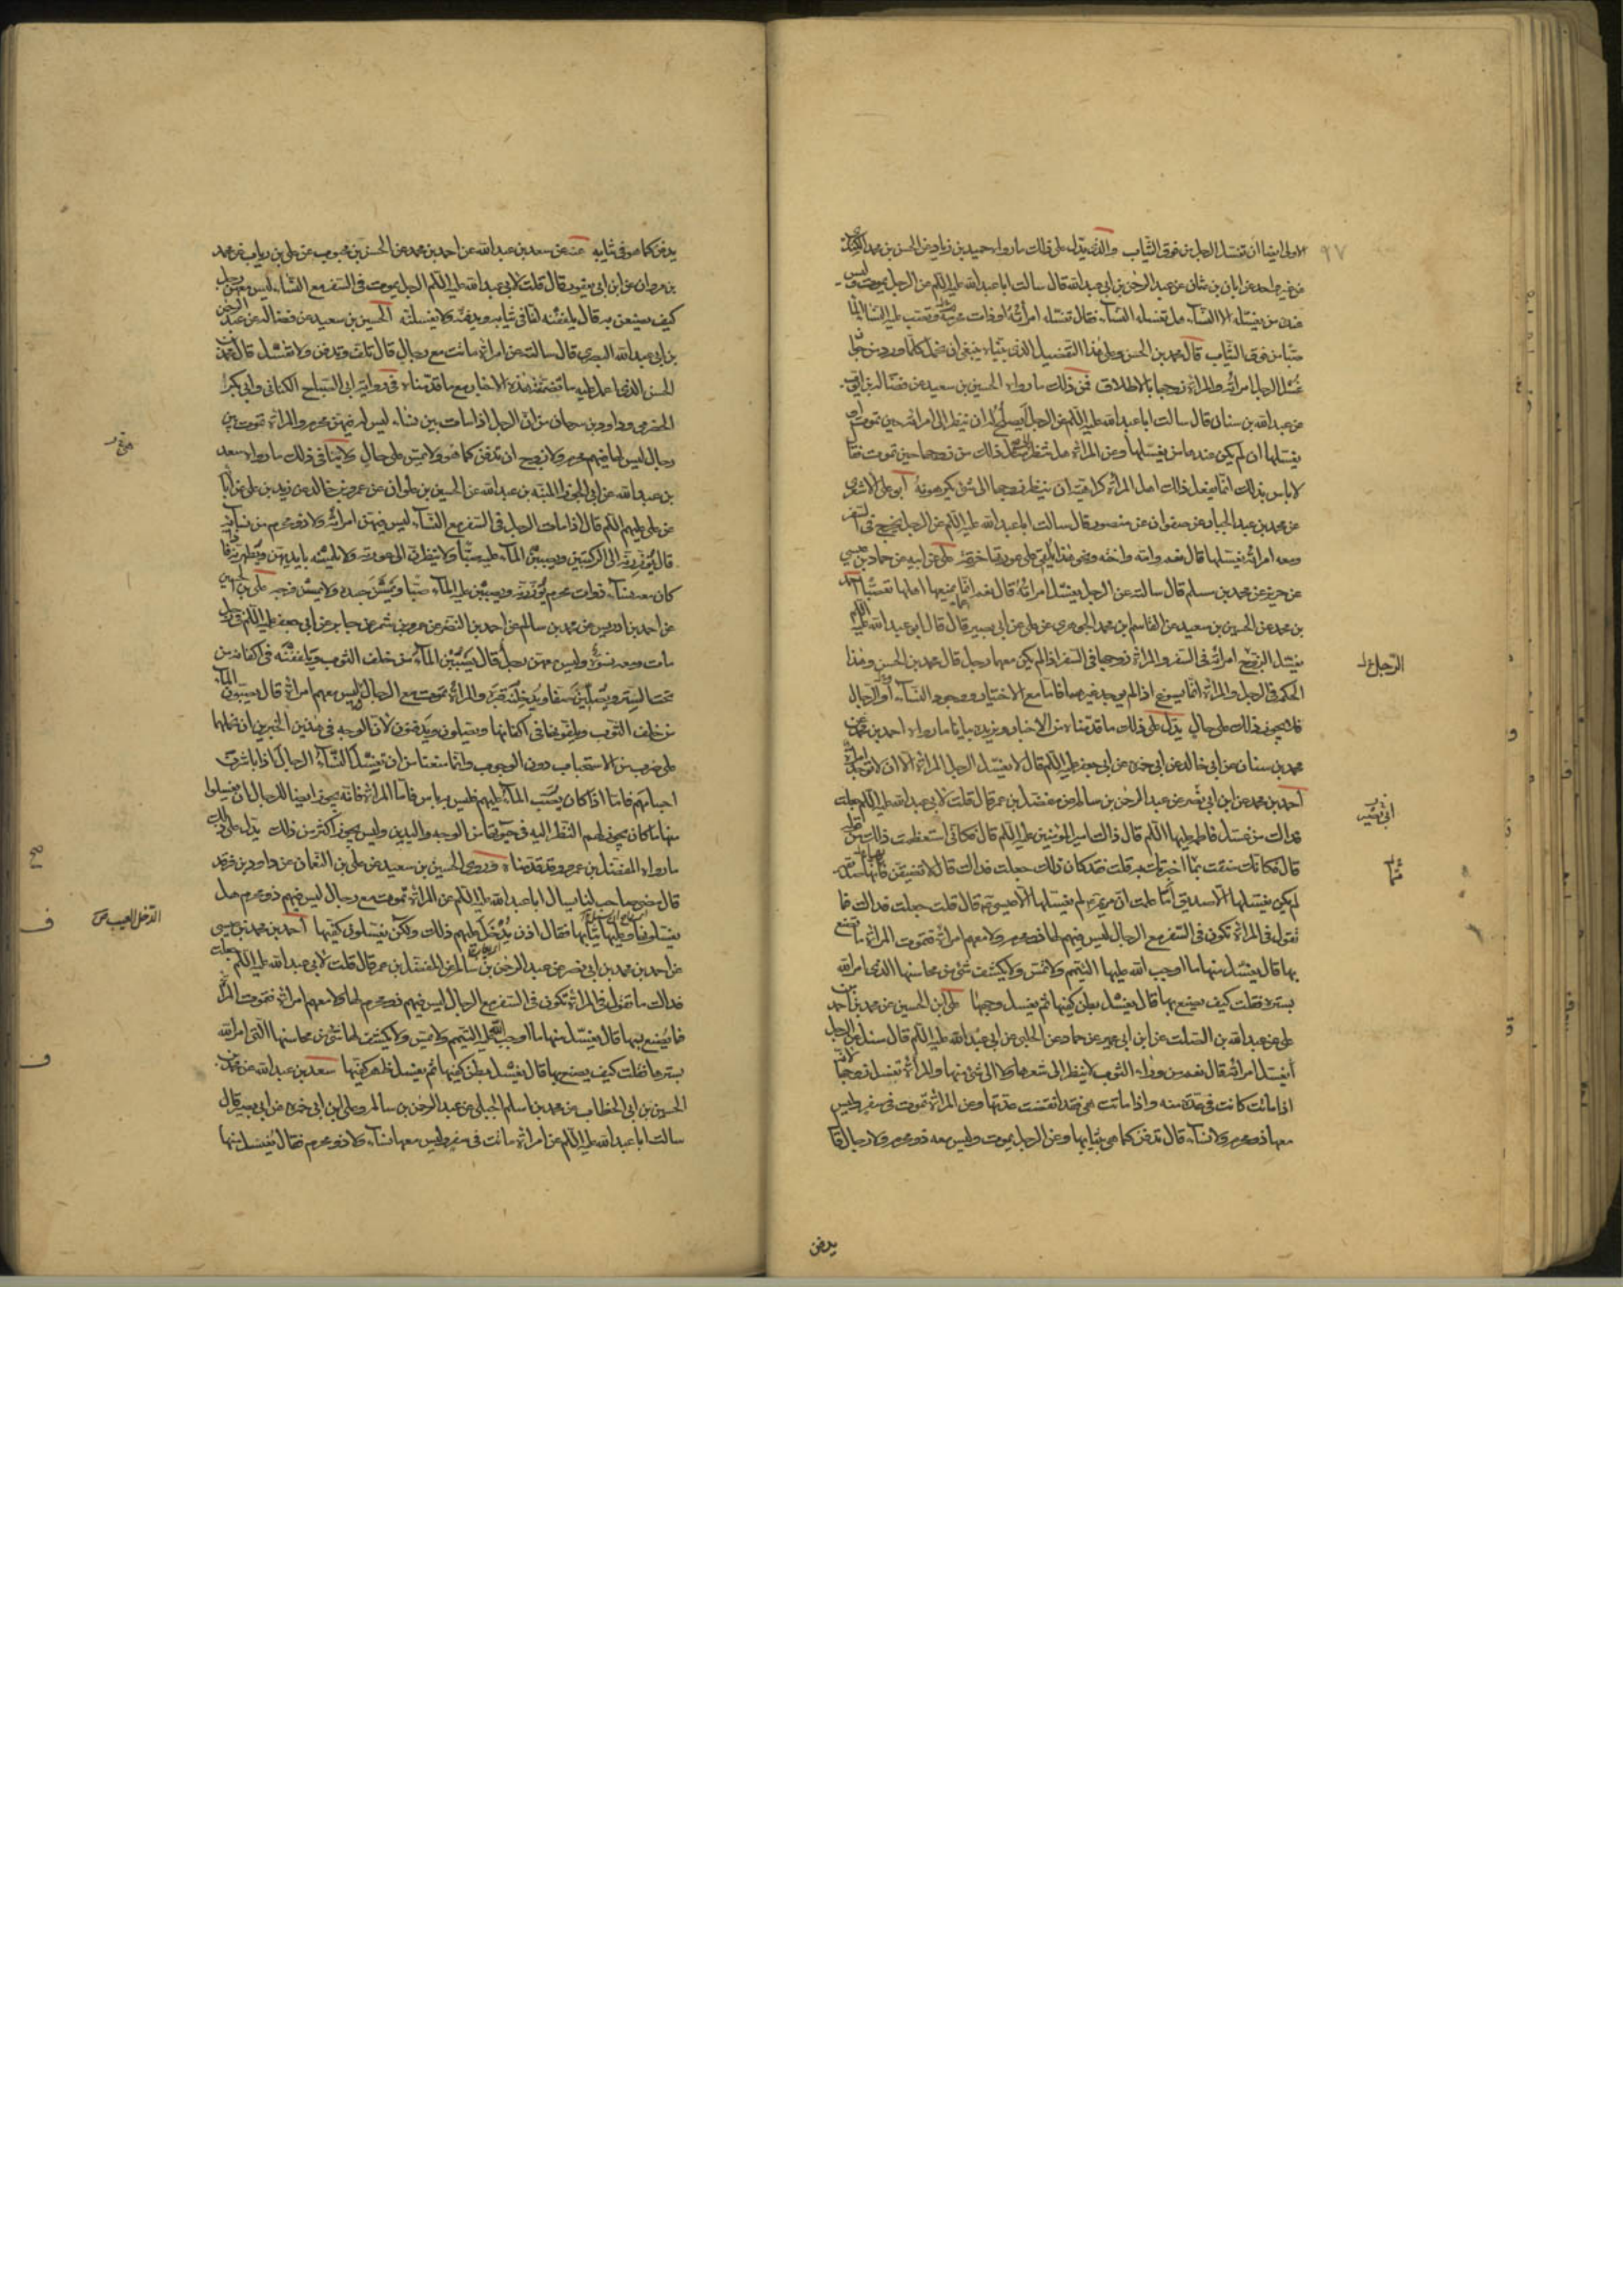 الاولى ايضا ان تغسل الرجل من فوق الثياب والذى يدل على ذلك ما رواه حميد بن زياد عن الحسن بن محمد الكندى
عن غير واحد عن ابان بن عثمان عن عبد الرحمن بن ابى عبد الله قال سالت ابا عبد الله عليه السلم عن الرجل يموت وليس
عنده من يغسله الا النسآء هل تغسله النسآء فقال تغسله امراته او ذات محرمه وتصب عليه النسآء المآء
صبا من فوق الثياب قال محمد بن الحسن وعلى هذا التفصيل الذى بيناه ينبغى ان نحمل كلما ورد من جواز
غسل الرجل امراته والمراة زوجها بالاطلاق فمن ذلك ما رواه الحسين بن سعيد عن فضالة بن ايوب
عن عبد الله بن سنان قال سالت ابا عبد الله عليه السلم عن الرجل ايصلح له ان ينظر الى امراته حين تموت او
يغسلها ان لم يكن عندها من يغسلها وعن المراة هل تنظر الى مثل ذلك من زوجها حين تموت فقال
لا باس بذلك انما يفعل ذلك اهل المراة كراهية ان ينظر زوجها الى شئ يكرهونه ابو على الاشعرى
عن محمد بن عبد الجبار عن صفوان عن منصور قال سالت ابا عبد الله عليه السلم عن الرجل يخرج فى السفر
ومعه امراته يغسلها قال نعم وامه واخته ونحو هذا يلقى على عورتها خرقة على عن ابيه عن حماد بن عيسى
عن حريز عن محمد بن مسلم قال سالته عن الرجل يغسل امراته قال نعم انما يمنعها اهلها تعصبا احمد
بن محمد عن الحسين بن سعيد عن القاسم ابن محمد الجوهرى عن على عن ابى بصير قال قال ابو عبد الله عليه السلم
يغسل الزوج امراته فى السفر والمراة زوجها فى السفر اذا لم يكن معها رجل قال محمد بن الحسن وهذا
الحكم فى الرجل والمراة انما يسوغ اذا لم يوجد غيرهما فاما مع الاختيار ووجود النسآء او الرجال
فلا يجوز ذلك على حال يدل على ذلك ما قدمناه من الاخبار ويزيده بيانا ما رواه احمد بن محمد عن
محمد بن سنان عن ابى خالد عن ابى حمزة عن ابى جعفر عليه السلم قال لا يغسل الرجل المراة الا ان لا توجد امراة
احمد بن محمد عن ابن ابى نصر عن عبد الرحمن بن سالم عن مفضل بن عمر قال قلت لابى عبد الله عليه السلم جعلت
فداك من غسل فاطمة عليها السلم قال ذاك امير المؤمنين عليه السلم قال فكانى استعظمت ذلك من قوله
قال فكانك ضقت بما اخبرتك به قلت قد كان ذلك جعلت فداك قال لا تضيقن فانها صديقة
لم يكن يغسلها الا صديق اما علمت ان مريم لم يغسلها الا عيسى قال قلت جعلت فداك فما
تقول فى المراة تكون فى السفر مع الرجال ليس فيهم لها ذو محرم ولا معهم امراة فتموت المراة ما يصنع
بها قال يغسل منها ما اوجب الله عليها التيمم ولا تمس ولا يكشف شئ من محاسنها الذى امر الله
بستره فقلت كيف يصنع بها قال يغسل بطن كفيها ثم يغسل وجهها على ابن الحسين عن محمد بن احمد بن
على عن عبد الله بن الصلت عن ابن ابى عمير عن حماد عن الحلبى عن ابى عبد الله عليه السلم قال سئل عن الرجل
ايغسل امراته قال نعم من ورآء الثوب لا ينظر الى شعرها ولا الى شئ منها والمراة تغسل زوجها لانه
اذا مات كانت فى عدة منه واذا ماتت هى فقد انقضت عدتها وعن المراة تموت فى سفر وليس
معها ذو محرم ولا نسآء قال تدفن كما هى بثيابها وعن الرجل يموت وليس معه ذو محرم ولا رجال قال
يدفن
يدفن كما هو فى ثيابه عنه عن سعد بن عبد الله عن احمد بن محمد عن الحسن بن محبوب عن على بن رياب عن محمد
بن مروان عن ابن ابى يعفور قال قلت لابى عبد الله عليه السلم الرجل يموت فى السفر مع النسآء ليس معهن رجل
كيف يصنعن به قال يلففنه لفا فى ثيابه ويدفنه ولا يغسلنه الحسين بن سعيد عن فضالة عن عبد الرحمن
بن ابى عبد الله البصرى قال سالته عن امراة ماتت مع رجال قال تلف وتدفن ولا تغسل قال محمد بن
الحسن الذى اعمل عليه ما تضمنته هذه الاخبار مع ما قدمناه فى رواية ابى الصباح الكنانى وابى بكر
الحضرمى وداود بن سرحان من ان الرجل اذا مات بين نسآء ليس له فيهن محرم والمراة تموت بين
رجال ليس لها فيهم محرم ولا زوج ان تدفن كما هو ولا يمس على حال ولا ينافى ذلك ما رواه سعد
بن عبد الله عن ابى الجوزا المنبه بن عبد الله عن الحسين بن علوان عن عمرو بن خالد عن زيد بن على عن آبائه
عن على عليهم السلم قال اذا مات الرجل فى السفر مع النسآء ليس فيهن امراته ولا ذو محرم من نسآئه
قال يوزرنه الى الركبتين ويصببن المآء عليه صبا ولا ينظرن الى عورته ولا يلمسنه بايديهن ويطهرنه فاذا
كان معه نسآء ذوات محرم يوزرنه ويصببن عليه المآء صبا ويمسسن جسده ولا يمسسن فرجه على بن الحسين
عن احمد بن ادريس عن محمد بن سالم عن احمد بن النضر عن عمرو بن شمر عن جابر عن ابى جعفر عليه السلم فى رجل
مات ومعه نسوة وليس معهن رجل قال يصببن المآء من خلف الثوب ويلففنه فى اكفانه من
تحت الستر ويصلين صفا ويدخلنه قبره والمراة تموت مع الرجال ليس معهم امراة قال يصبون المآء
من خلف الثوب ويلفونها فى اكفانها ويصلون ويدفنون لان الوجه فى هذين الخبرين ان نحملها
على ضرب من الاستحباب دون الوجوب وانما منعنا من ان يغسل النسآء الرجال اذا باشرن
اجسامهم فاما اذا كان يصب المآء عليهم فليس به باس فاما المراة فانه يجوز ايضا للرجال ان يغسلوا
منها ما كان يجوز لهم النظر اليه فى حيوتها من الوجه واليدين وليس يجوز اكثر من ذلك يدل على ذلك
ما رواه المفضل بن عمر وقد قدمناه وروى الحسين بن سعيد عن على بن النعمان عن داود بن فرقد
قال مضى صاحب لنا يسال ابا عبد الله عليه السلم عن المراة تموت مع رجال ليس فيهم ذو محرم هل
يغسلونها وعليها ثيابها فقال اذن يدخل عليهم ذلك ولكن يغسلون كفيها احمد بن محمد بن عيسى
عن احمد بن محمد بن ابى نصر عن عبد الرحمن بن سالم عن المفضل بن عمر قال قلت لابى عبد الله عليه السلم جعلت
فداك ما تقول فى المراة تكون فى السفر مع الرجال ليس فيهم ذو محرم لها ولا معهم امراة فتموت المراة
فما يصنع بها قال يغسل منها ما اوجب الله عليه التيمم ولا يمس ولا يكشف لها شئ من محاسنها التى امر الله
بسترها فقلت كيف يصنع بها قال يغسل بطن كفيها ثم يغسل ظهر كفيها سعد بن عبد الله عن محمد بن
الحسين بن ابى الخطاب عن محمد بن اسلم الجبلى عن عبد الرحمن بن سالم وعلى بن ابى حمزة عن ابى بصير قال
سالت ابا عبد الله عليه السلم عن امراة ماتت فى سفر وليس معها نسآء ولا ذو محرم فقال يغسل منها